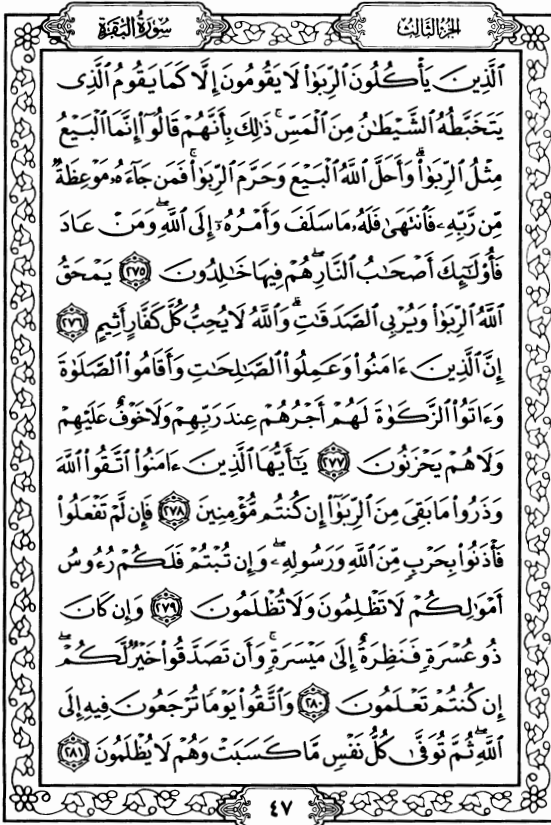 سُورَةُ البَقَرَةِ
الجُزءُ الثَّالِثُ
ٱلَّذِينَ يَأْكُلُونَ ٱلرِّبَوٰا۟ لَا يَقُومُونَ إِلَّا كَمَا يَقُومُ ٱلَّذِى
يَتَخَبَّطُهُ ٱلشَّيْطَٰنُ مِنَ ٱلْمَسِّ ۚ ذَٰلِكَ بِأَنَّهُمْ قَالُوٓا۟ إِنَّمَا ٱلْبَيْعُ
مِثْلُ ٱلرِّبَوٰا۟ ۗ وَأَحَلَّ ٱللَّهُ ٱلْبَيْعَ وَحَرَّمَ ٱلرِّبَوٰا۟ ۚ فَمَن جَآءَهُۥ مَوْعِظَةٌ
مِّن رَّبِّهِۦ فَٱنتَهَىٰ فَلَهُۥ مَا سَلَفَ وَأَمْرُهُۥٓ إِلَى ٱللَّهِ ۖ وَمَنْ عَادَ
فَأُو۟لَٰٓئِكَ أَصْحَٰبُ ٱلنَّارِ ۖ هُمْ فِيهَا خَٰلِدُونَ ٢٧٥ يَمْحَقُ
ٱللَّهُ ٱلرِّبَوٰا۟ وَيُرْبِى ٱلصَّدَقَٰتِ ۗ وَٱللَّهُ لَا يُحِبُّ كُلَّ كَفَّارٍ أَثِيمٍ ٢٧٦
إِنَّ ٱلَّذِينَ ءَامَنُوا۟ وَعَمِلُوا۟ ٱلصَّٰلِحَٰتِ وَأَقَامُوا۟ ٱلصَّلَوٰةَ
وَءَاتَوُا۟ ٱلزَّكَوٰةَ لَهُمْ أَجْرُهُمْ عِندَ رَبِّهِمْ وَلَا خَوْفٌ عَلَيْهِمْ
وَلَا هُمْ يَحْزَنُونَ ٢٧٧ يَٰٓأَيُّهَا ٱلَّذِينَ ءَامَنُوا۟ ٱتَّقُوا۟ ٱللَّهَ
وَذَرُوا۟ مَا بَقِىَ مِنَ ٱلرِّبَوٰٓا۟ إِن كُنتُم مُّؤْمِنِينَ ٢٧٨ فَإِن لَّمْ تَفْعَلُوا۟
فَأْذَنُوا۟ بِحَرْبٍ مِّنَ ٱللَّهِ وَرَسُولِهِۦ ۖ وَإِن تُبْتُمْ فَلَكُمْ رُءُوسُ
أَمْوَٰلِكُمْ لَا تَظْلِمُونَ وَلَا تُظْلَمُونَ ٢٧٩ وَإِن كَانَ
ذُو عُسْرَةٍ فَنَظِرَةٌ إِلَىٰ مَيْسَرَةٍ ۚ وَأَن تَصَدَّقُوا۟ خَيْرٌ لَّكُمْ ۖ
إِن كُنتُمْ تَعْلَمُونَ ٢٨٠ وَٱتَّقُوا۟ يَوْمًا تُرْجَعُونَ فِيهِ إِلَى
ٱللَّهِ ۖ ثُمَّ تُوَفَّىٰ كُلُّ نَفْسٍ مَّا كَسَبَتْ وَهُمْ لَا يُظْلَمُونَ ٢٨١
٤٧